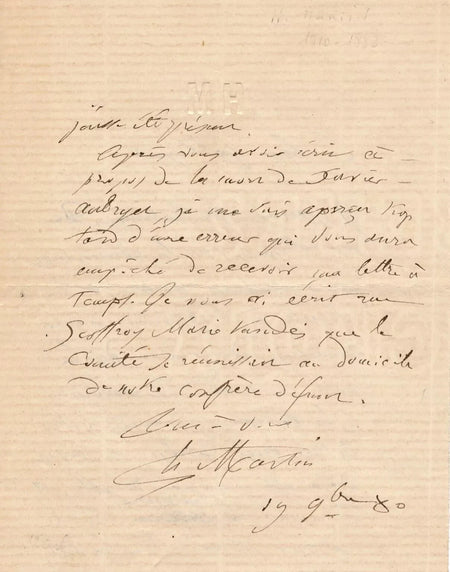 H. Martin
1810-1883
MH
j'eusse été présent.
Après vous avoir écrit à
propos de la mort de Xavier
Aubryet, je me suis aperçu trop
tard d'une erreur qui vous aura
empêché de recevoir ma lettre à
temps. Je vous ai écrit rue
Geoffroy Marie
que le
Comité se réunissait au domicile
de notre confrère défunt.
Tout à vous
H Martin
19 9bre 80